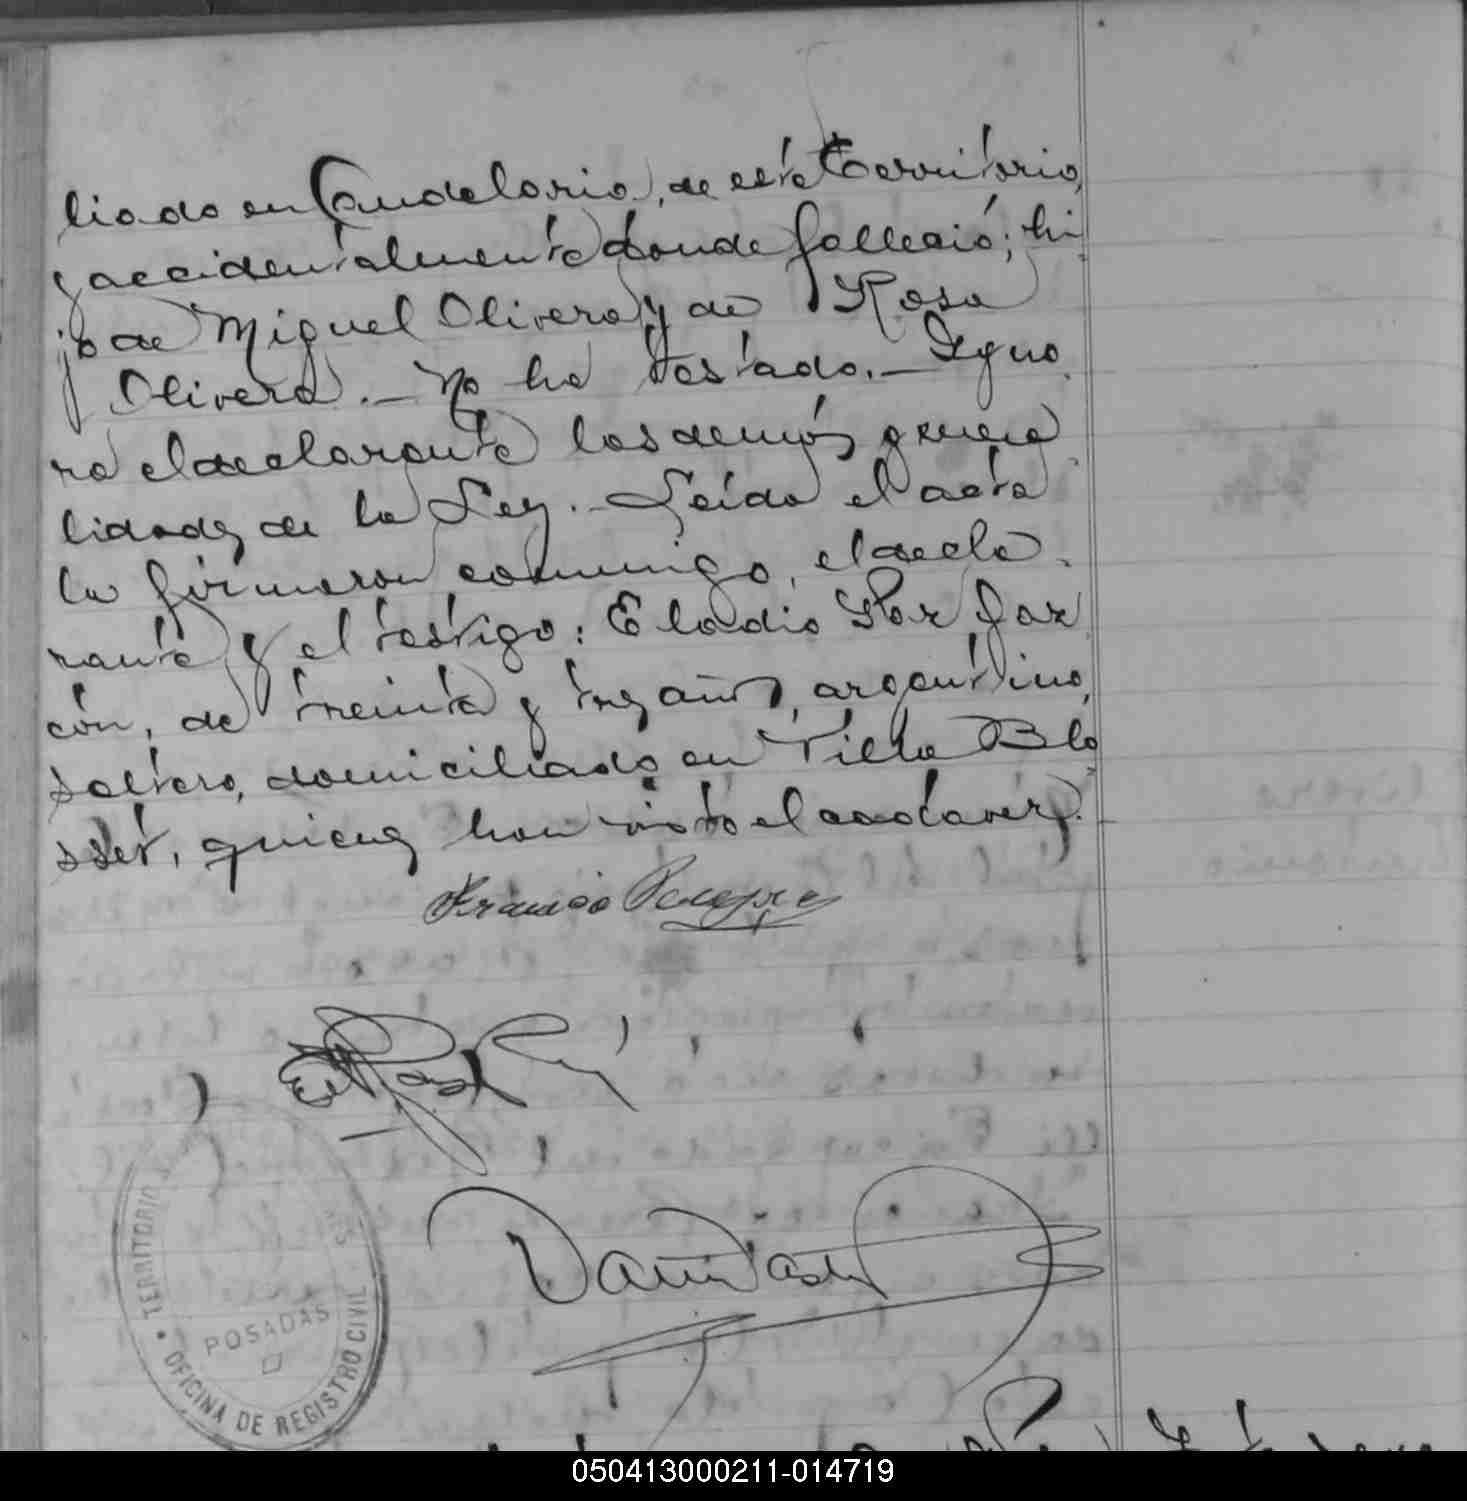 liado en Candelaria, de este territorio,
y accidentalmente donde falleció; hi-
jo de Miguel Olivera y de Rosa
Olivera.— No ha testado.— Igno-
ra el declarante las demás genera-
lidades de la Ley.— Leída el acta
la firmaron conmigo, el decla-
rante y el testigo: Eladio
cón, de treinta y tres años, argentino,
soltero, domiciliado en Villa Blo
sset, quienes han visto el cadaver.
TERRITORIO
POSADAS
OFICINA DE REGISTRO CIVIL
050413000211-014719